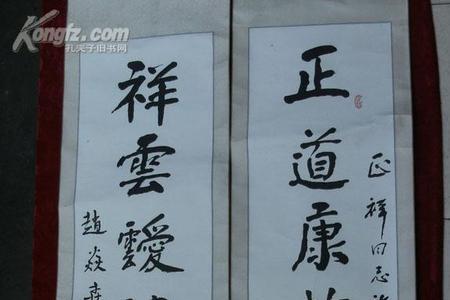 Kongfz.com
孔夫子旧书网
正道康
正祥同志
祥雲靉
趙焱森